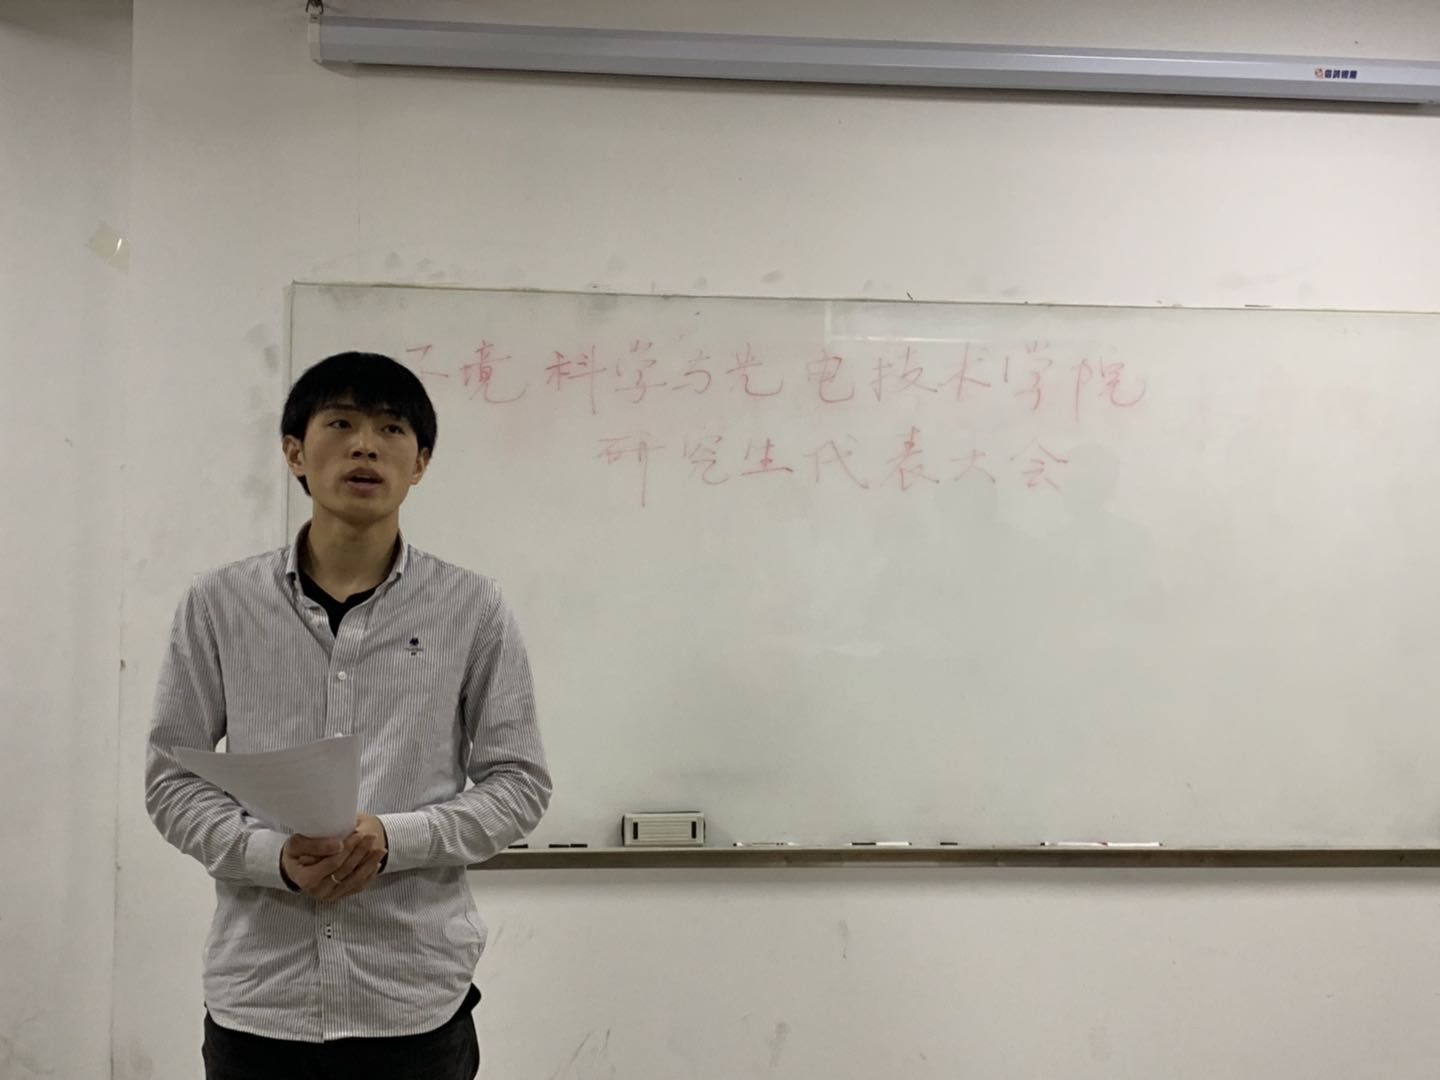 环境科学与光电技术学院
研究生代表大会